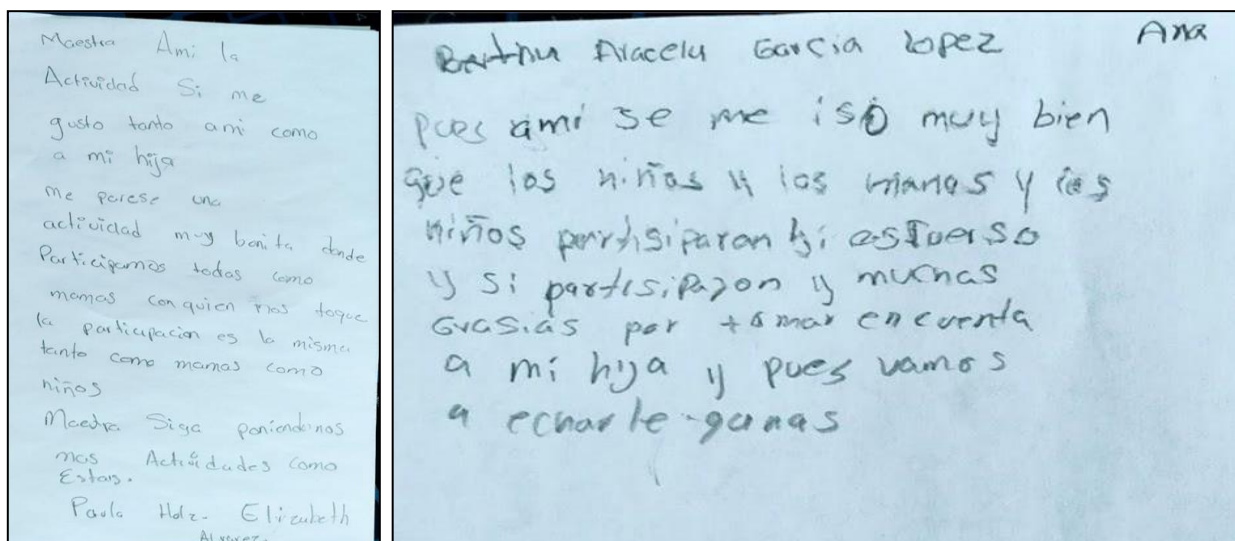 Maestra Ami la
Actividad Si me
gusto tanto ami como
a mi hija
me parese una
actividad muy bonita donde
Participamos todas como
mamas con quien nos toque
la participacion es la misma
tanto como mamas como
niños
Maestra Siga poniendonos
mas Actividades como
Estas.
Paula Elizabeth
Alvarez.
Garcia Lopez Ana
pues ami se me isó muy bien
que los niños y las mamas y los
niños partisiparon esfuerso
y si partisiparon y muchas
Grasias por tomar en cuenta
a mi hija y pues vamos
a echarle ganas